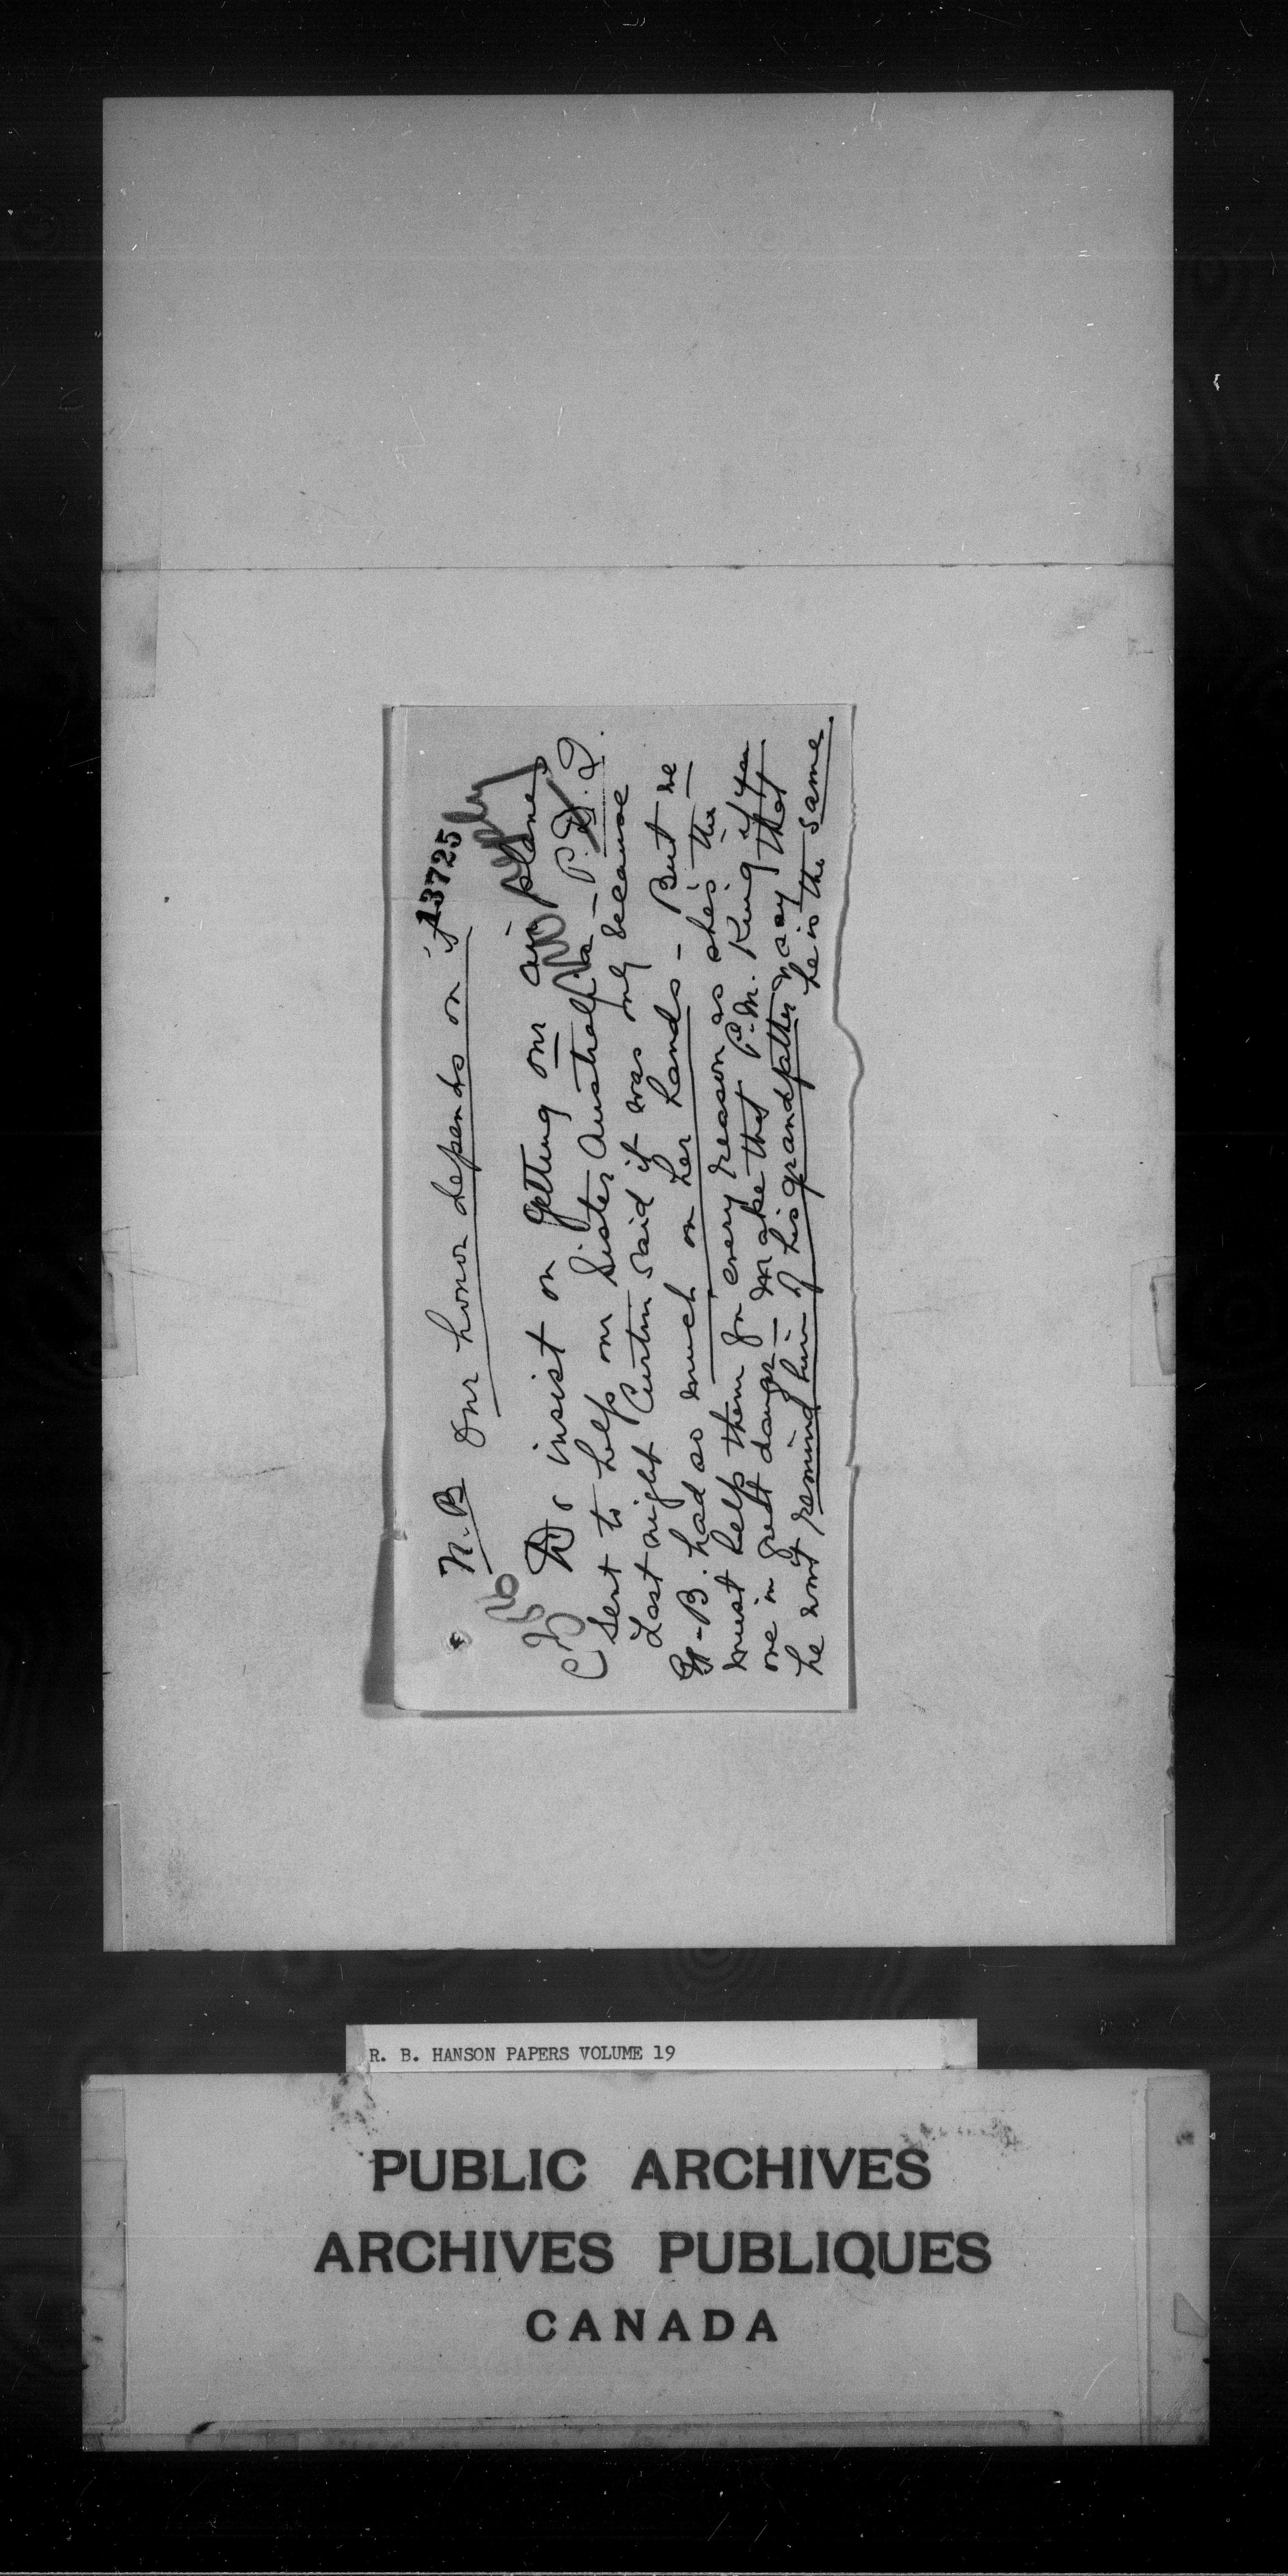 13725
N.B Our honor depends on it
No reply
Do insist on getting our air planes
sent to help our Sister Australia — P.D.Q.
Last night Curtin said it was only because
G-B. had so much on her hands — But we
must help them for every reason as she's the
one in great danger — make that P.M. King if you
he wont remind him of his grandfather say that
he is the same.
R. B. HANSON PAPERS VOLUME 19
PUBLIC ARCHIVES
ARCHIVES PUBLIQUES
CANADA